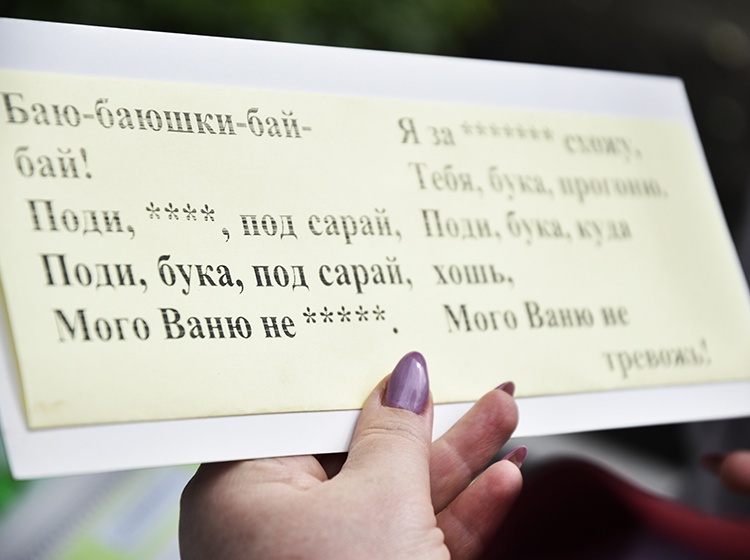 Баю-баюшки-бай-
бай!
Поди, ****, под сарай,
Поди, бука, под сарай,
Мого Ваню не *****.
Я за ******* схожу,
Тебя, бука, прогоню.
Поди, бука, куда
хошь,
Мого Ваню не
тревожь!